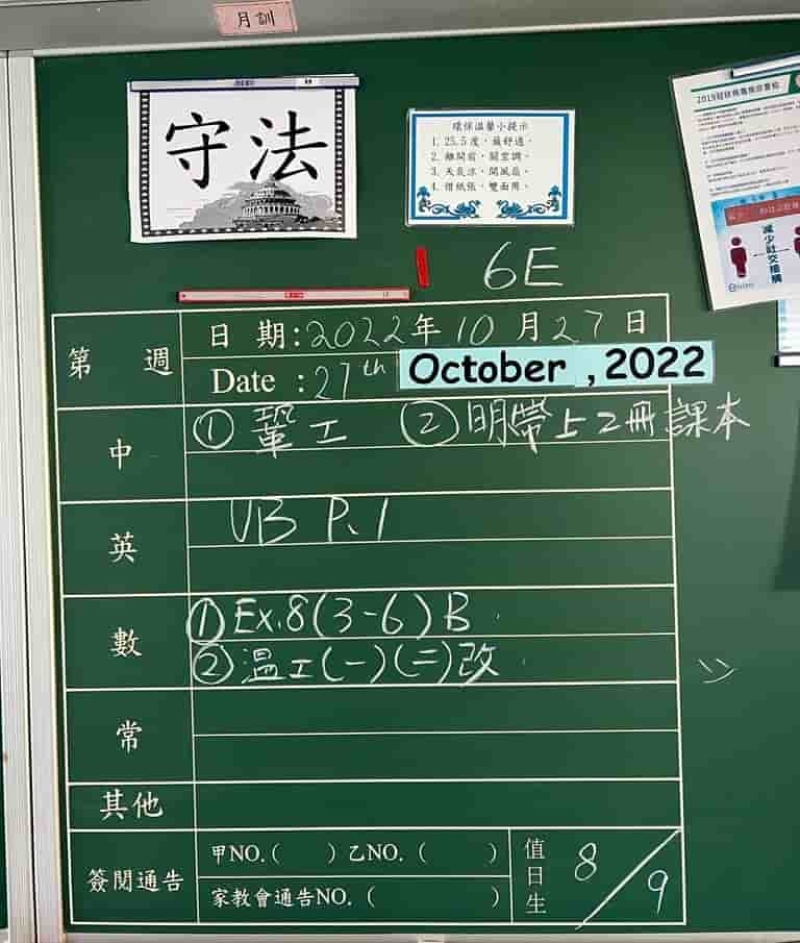 月訓
守法
環保溫馨小提示
1. 25.5度,最舒適。
2. 離開前,關空調。
3. 天氣涼,開風扇。
4. 借紙張,雙面用。
減少社交接觸
6E
第 週
日 期:2022年10月27日
Date :27th October ,2022
中
① 鞏工 ② 明帶上2冊課本
英
VB P.1
數
① Ex.8(3-6)B
② 溫工(一)(二)改
常
其他
簽閱通告
甲NO.( )乙NO.( )
家教會通告NO.( )
值日生
8/9